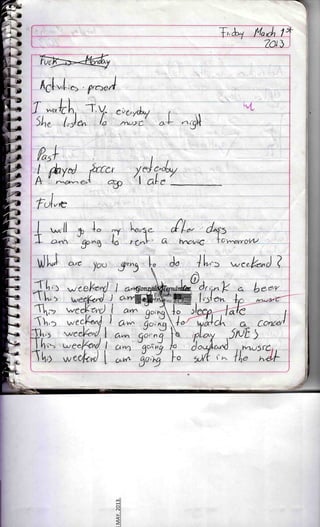 Friday March 1st
2013
Fuck Monday
Activities present
I watch T.V. everyday
She listen to music at nigh
Past
I played soccer yesterday
A moment ago I ate
Future
I will go to my house after
I am going to rent a movie tomorrow
What are you going to do this weekend?
This weekend I am going to drink a beer
This weekend I am listen to music
This weekend I am going to sleep late
This weekend I am going to watch a concert
This weekend I am going to play SNES
This weekend I am going to download music
This weekend I am going to surf in the net
MAY. 2013.